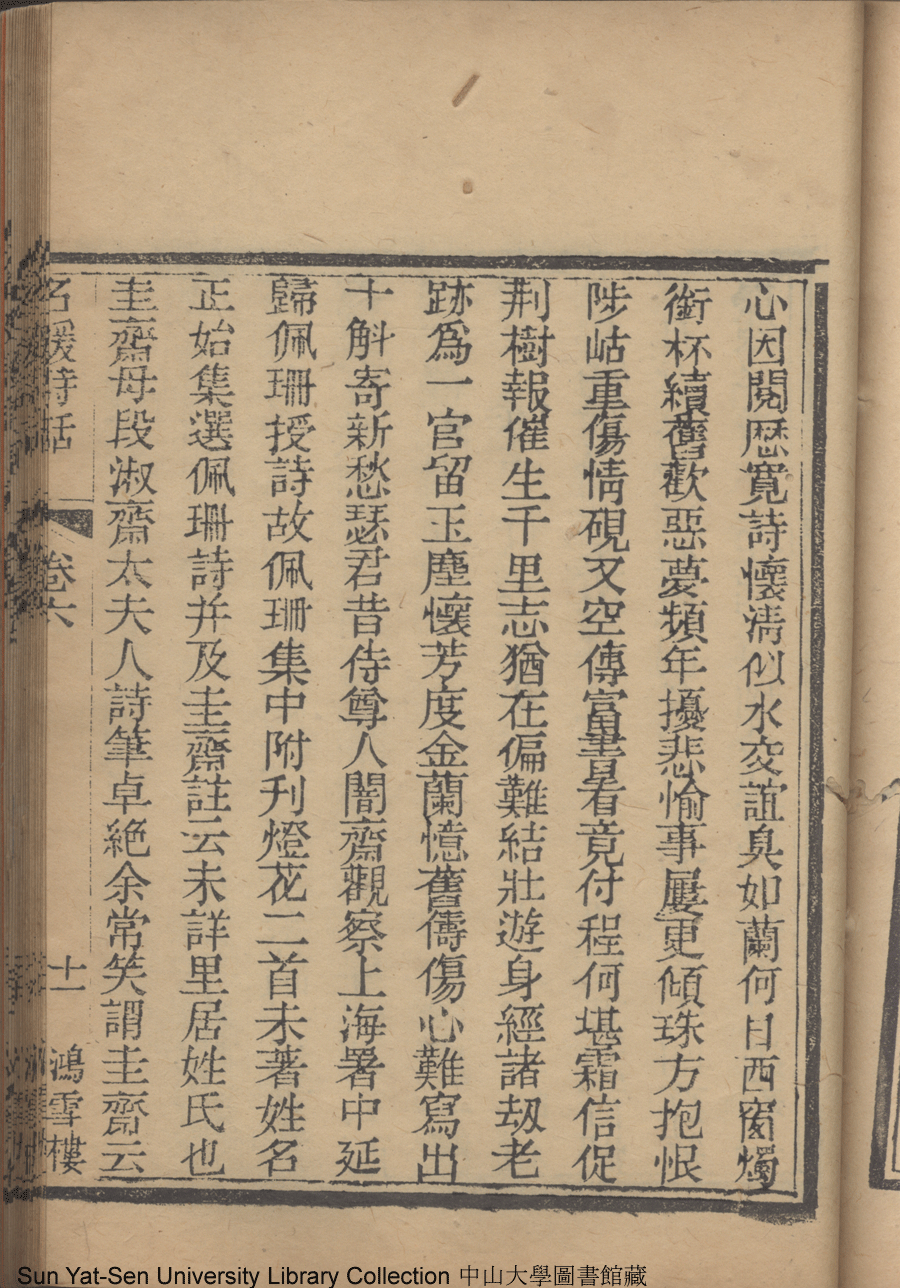 心因閱歷寬詩懷清似水交誼臭如蘭何日西窗燭
銜杯續舊歡惡夢頻年擾悲愉事屢更傾珠方抱恨
陟岵重傷情硯又空傳富書看竟付程何堪霜信促
荆樹報催生千里志猶在偏難結壯遊身經諸刼老
跡爲一官留玉塵懷芳度金蘭憶舊儔傷心難寫出
十斛寄新愁瑟君昔侍尊人闇齋觀察上海署中延
歸佩珊授詩故佩珊集中附刊燈花二首未著姓名
正始集選佩珊詩并及圭齋註云未詳里居姓氏也
圭齋母段淑齋太夫人詩筆卓絶余常笑謂圭齋云
名媛詩話 卷六 十一 鴻雪樓
Sun Yat-Sen University Library Collection 中山大學圖書館藏